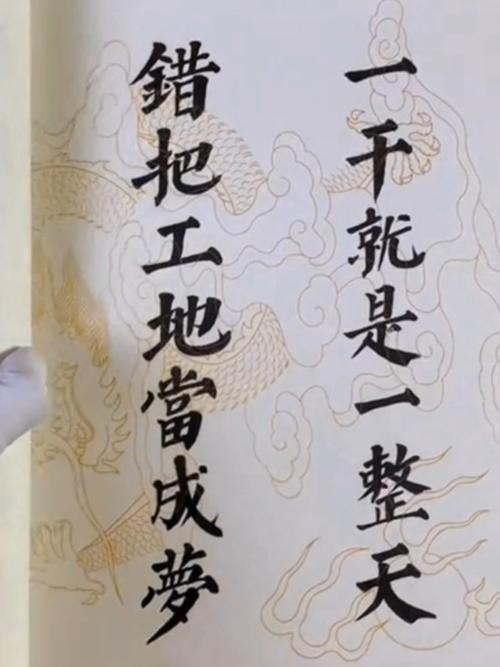 一干就是一整天
錯把工地當成夢